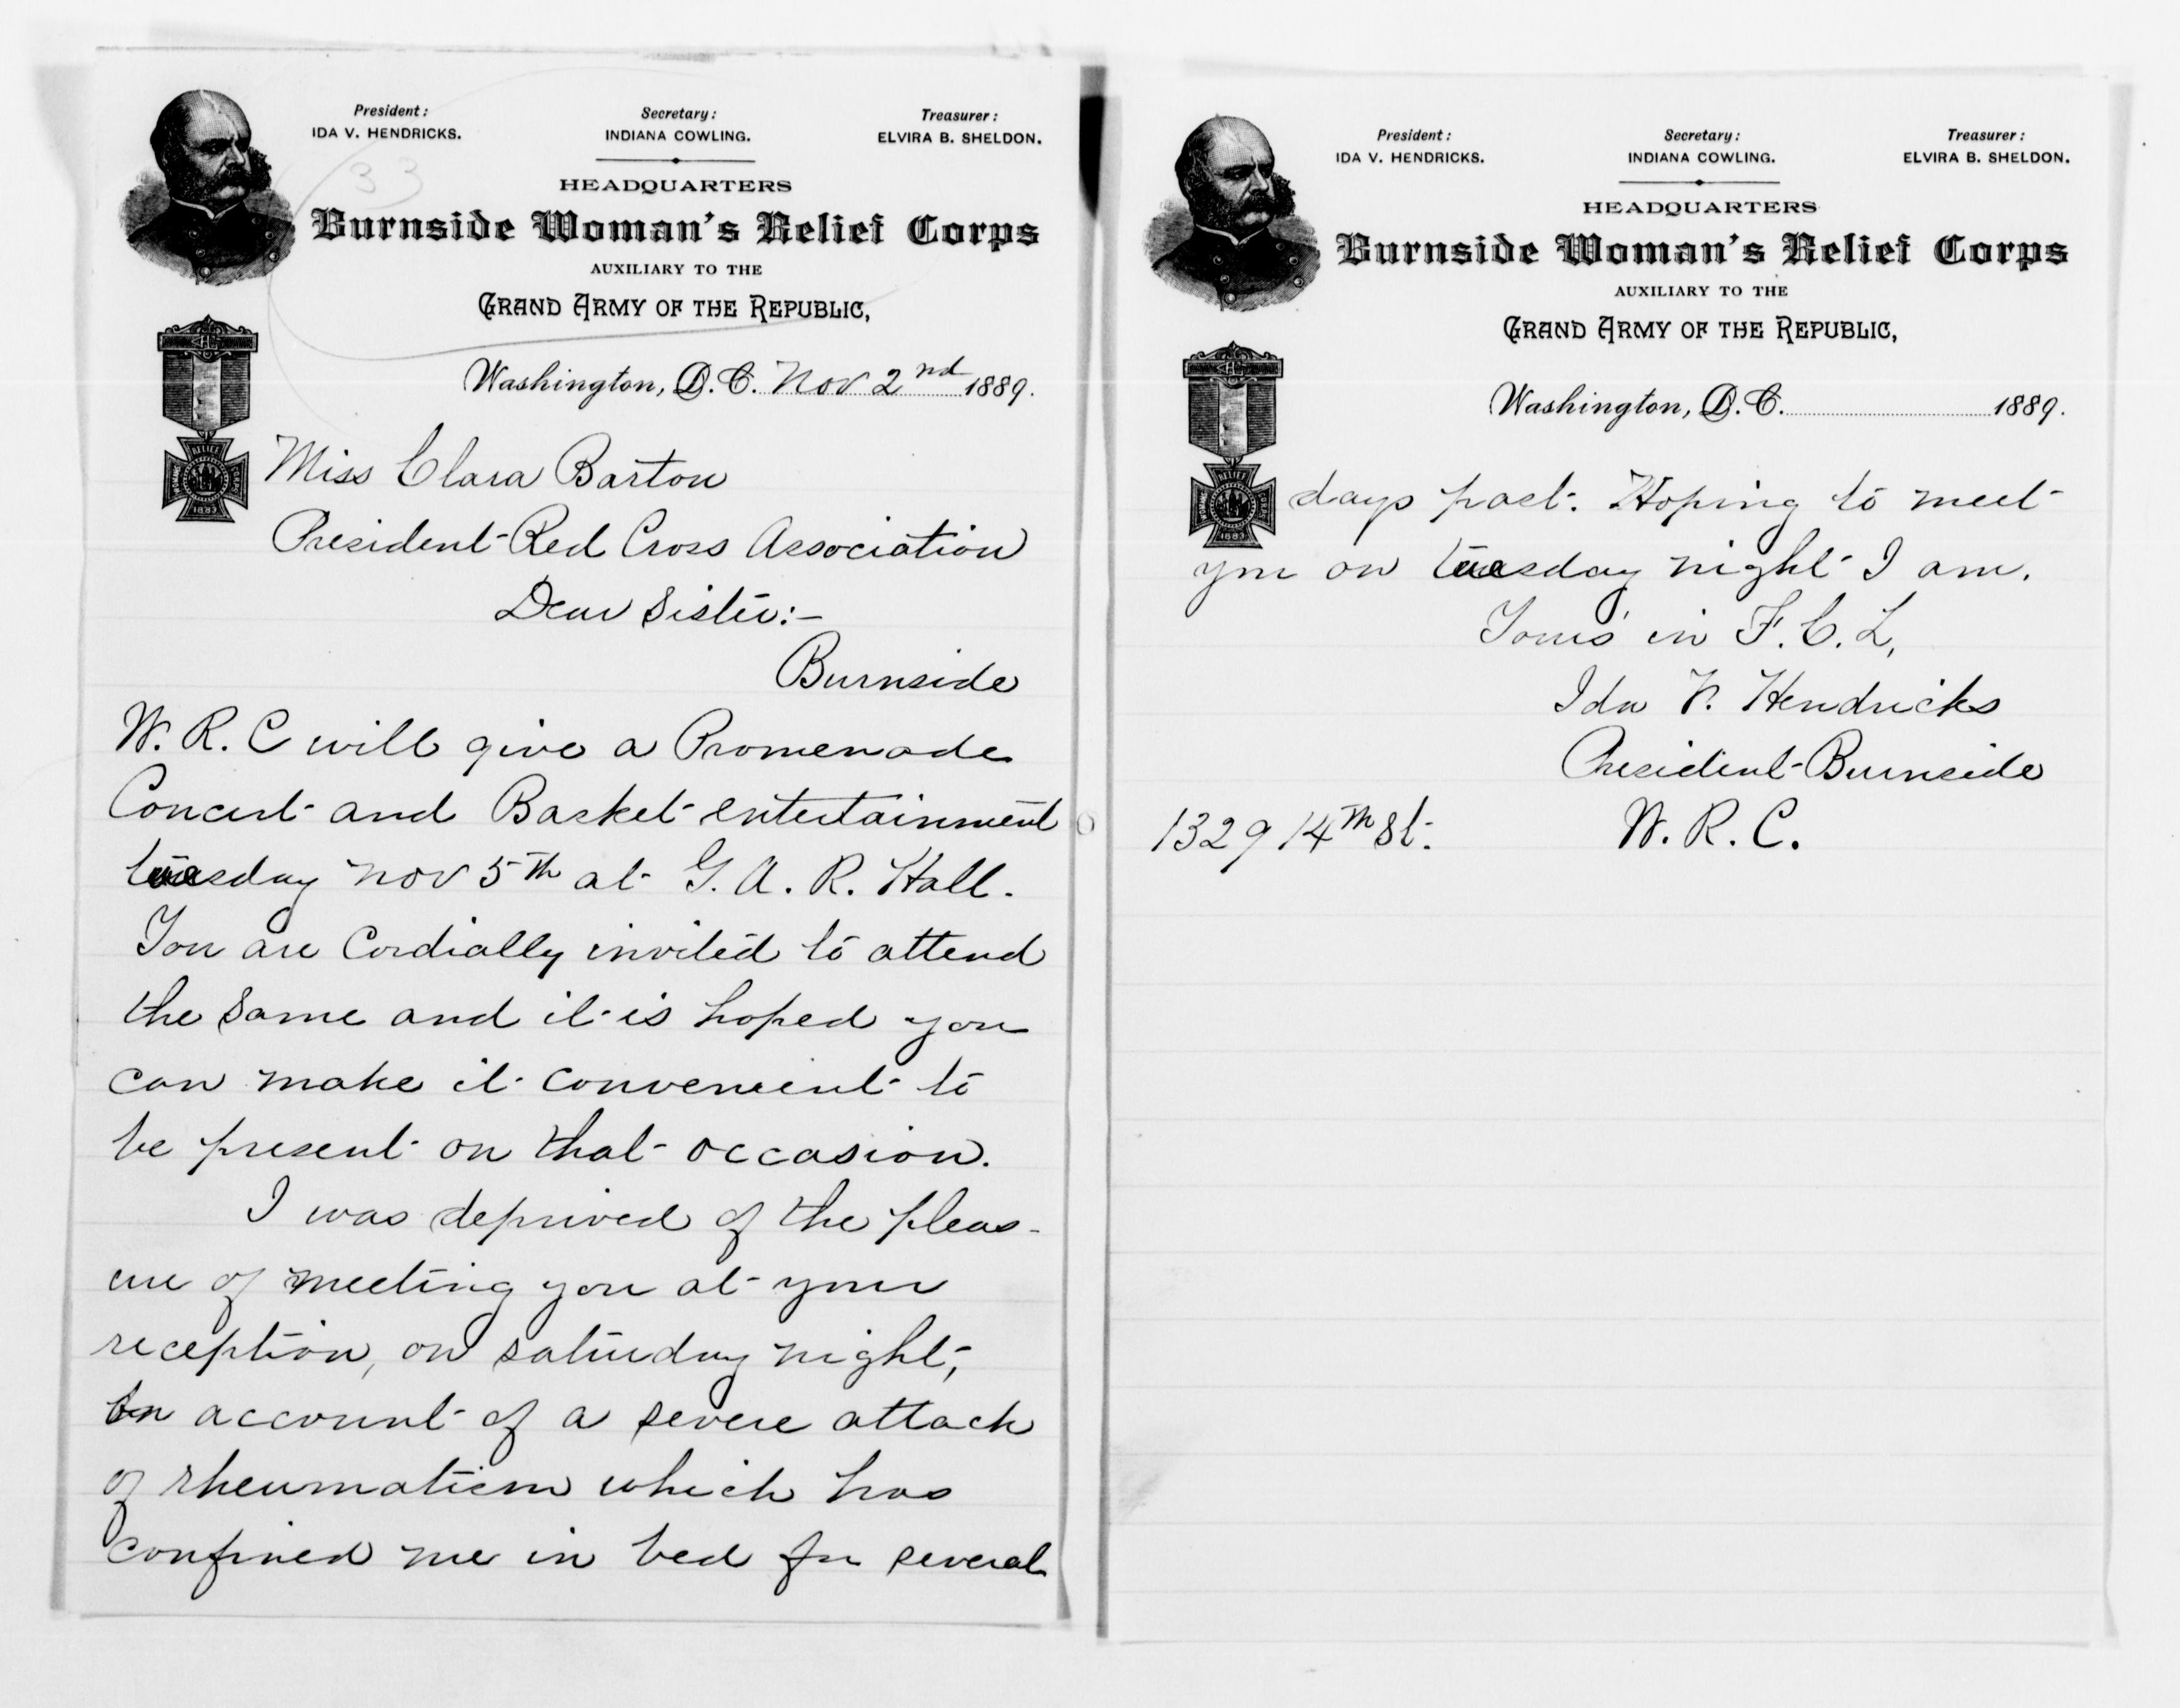 President:
IDA V. HENDRICKS.
Secretary:
INDIANA COWLING.
Treasurer:
ELVIRA B. SHELDON.
33
HEADQUARTERS
Burnside Woman's Relief Corps
AUXILIARY TO THE
GRAND ARMY OF THE REPUBLIC,
Washington, D. C. Nov 2nd 1889.
Miss Clara Barton
President Red Cross Association
Dear Sister:-
Burnside
W. R. C will give a Promenade
Concert and Basket entertainment
tuesday nov 5th at G. A. R. Hall.
You are Cordially invited to attend
the Same and it is hoped you
can make it convenient to
be present on that occasion.
I was deprived of the pleas-
ure of meeting you at your
reception, on saturday night,
on account of a severe attack
of rheumatism which has
confined me in bed for several
President:
IDA V. HENDRICKS.
Secretary:
INDIANA COWLING.
Treasurer:
ELVIRA B. SHELDON.
HEADQUARTERS
Burnside Woman's Relief Corps
AUXILIARY TO THE
GRAND ARMY OF THE REPUBLIC,
Washington, D. C. 1889.
RELIEF
1883
days past. Hoping to meet
you on tuesday night I am.
Yours in F. C. L,
Ida V. Hendricks
President Burnside
1329 14th St. W. R. C.